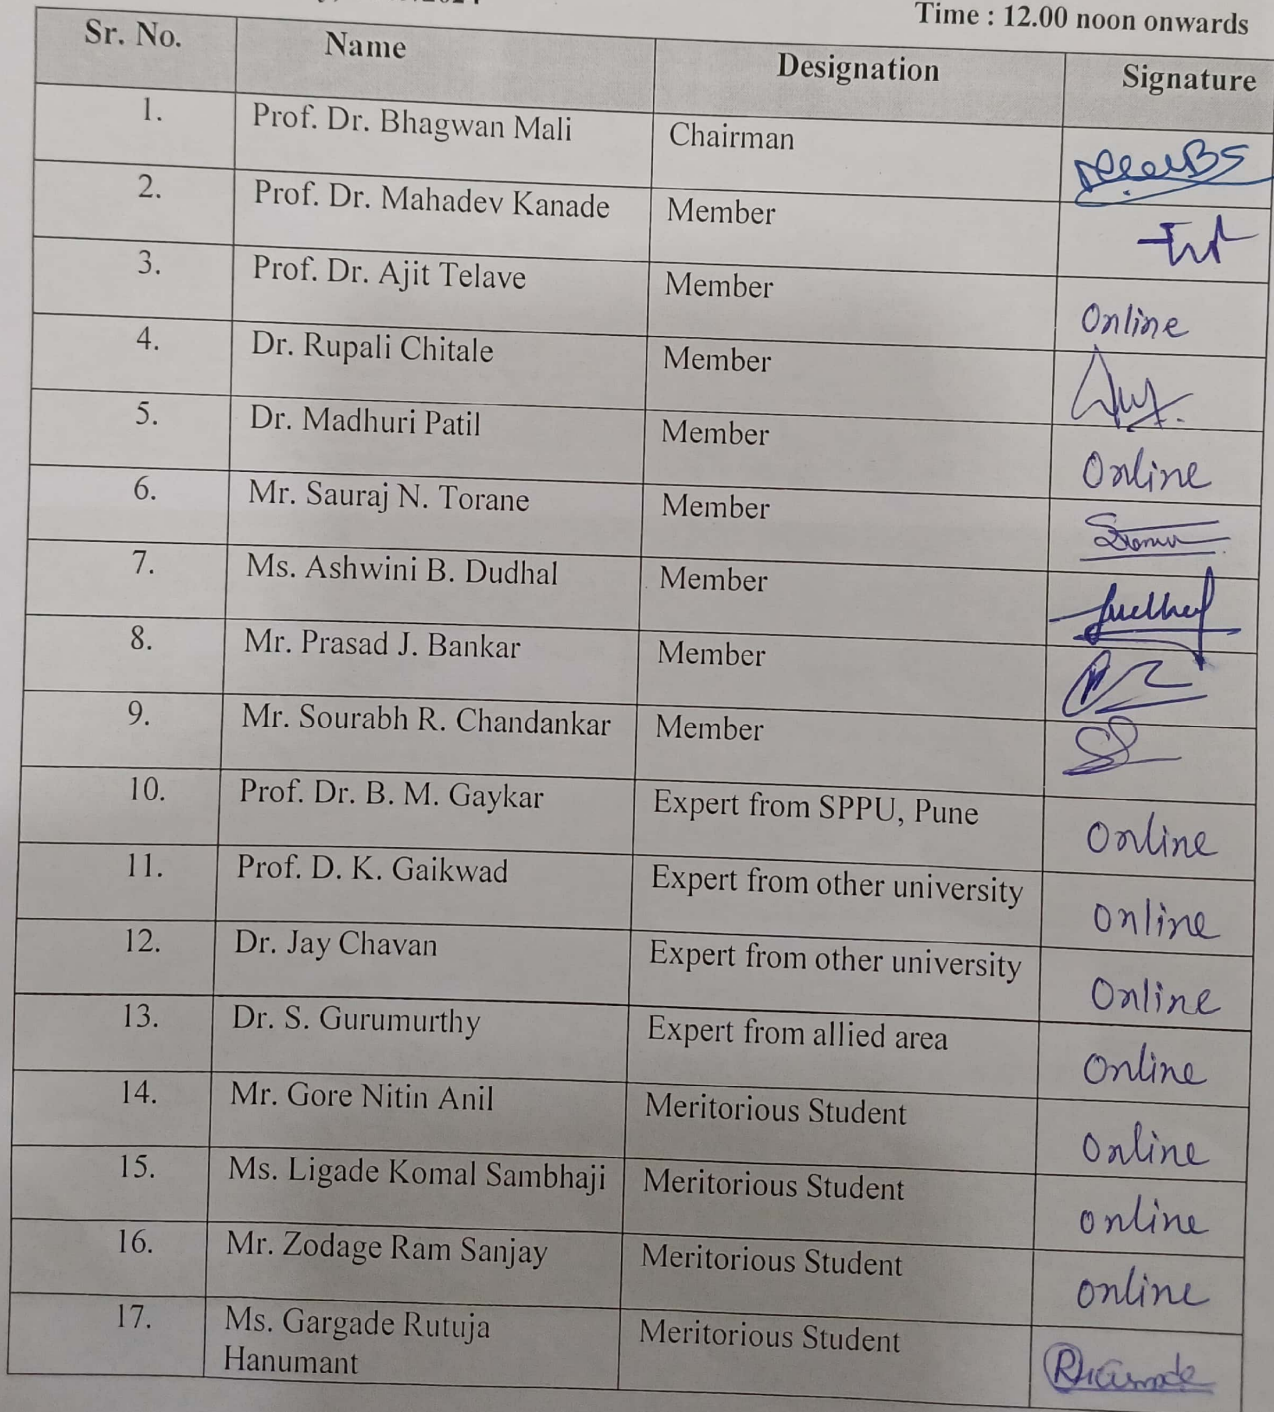 Time : 12.00 noon onwards
Sr. No. Name Designation Signature
1. Prof. Dr. Bhagwan Mali Chairman
2. Prof. Dr. Mahadev Kanade Member
3. Prof. Dr. Ajit Telave Member Online
4. Dr. Rupali Chitale Member
5. Dr. Madhuri Patil Member Online
6. Mr. Sauraj N. Torane Member
7. Ms. Ashwini B. Dudhal Member
8. Mr. Prasad J. Bankar Member
9. Mr. Sourabh R. Chandankar Member
10. Prof. Dr. B. M. Gaykar Expert from SPPU, Pune Online
11. Prof. D. K. Gaikwad Expert from other university Online
12. Dr. Jay Chavan Expert from other university Online
13. Dr. S. Gurumurthy Expert from allied area Online
14. Mr. Gore Nitin Anil Meritorious Student Online
15. Ms. Ligade Komal Sambhaji Meritorious Student online
16. Mr. Zodage Ram Sanjay Meritorious Student online
17. Ms. Gargade Rutuja Meritorious Student
Hanumant